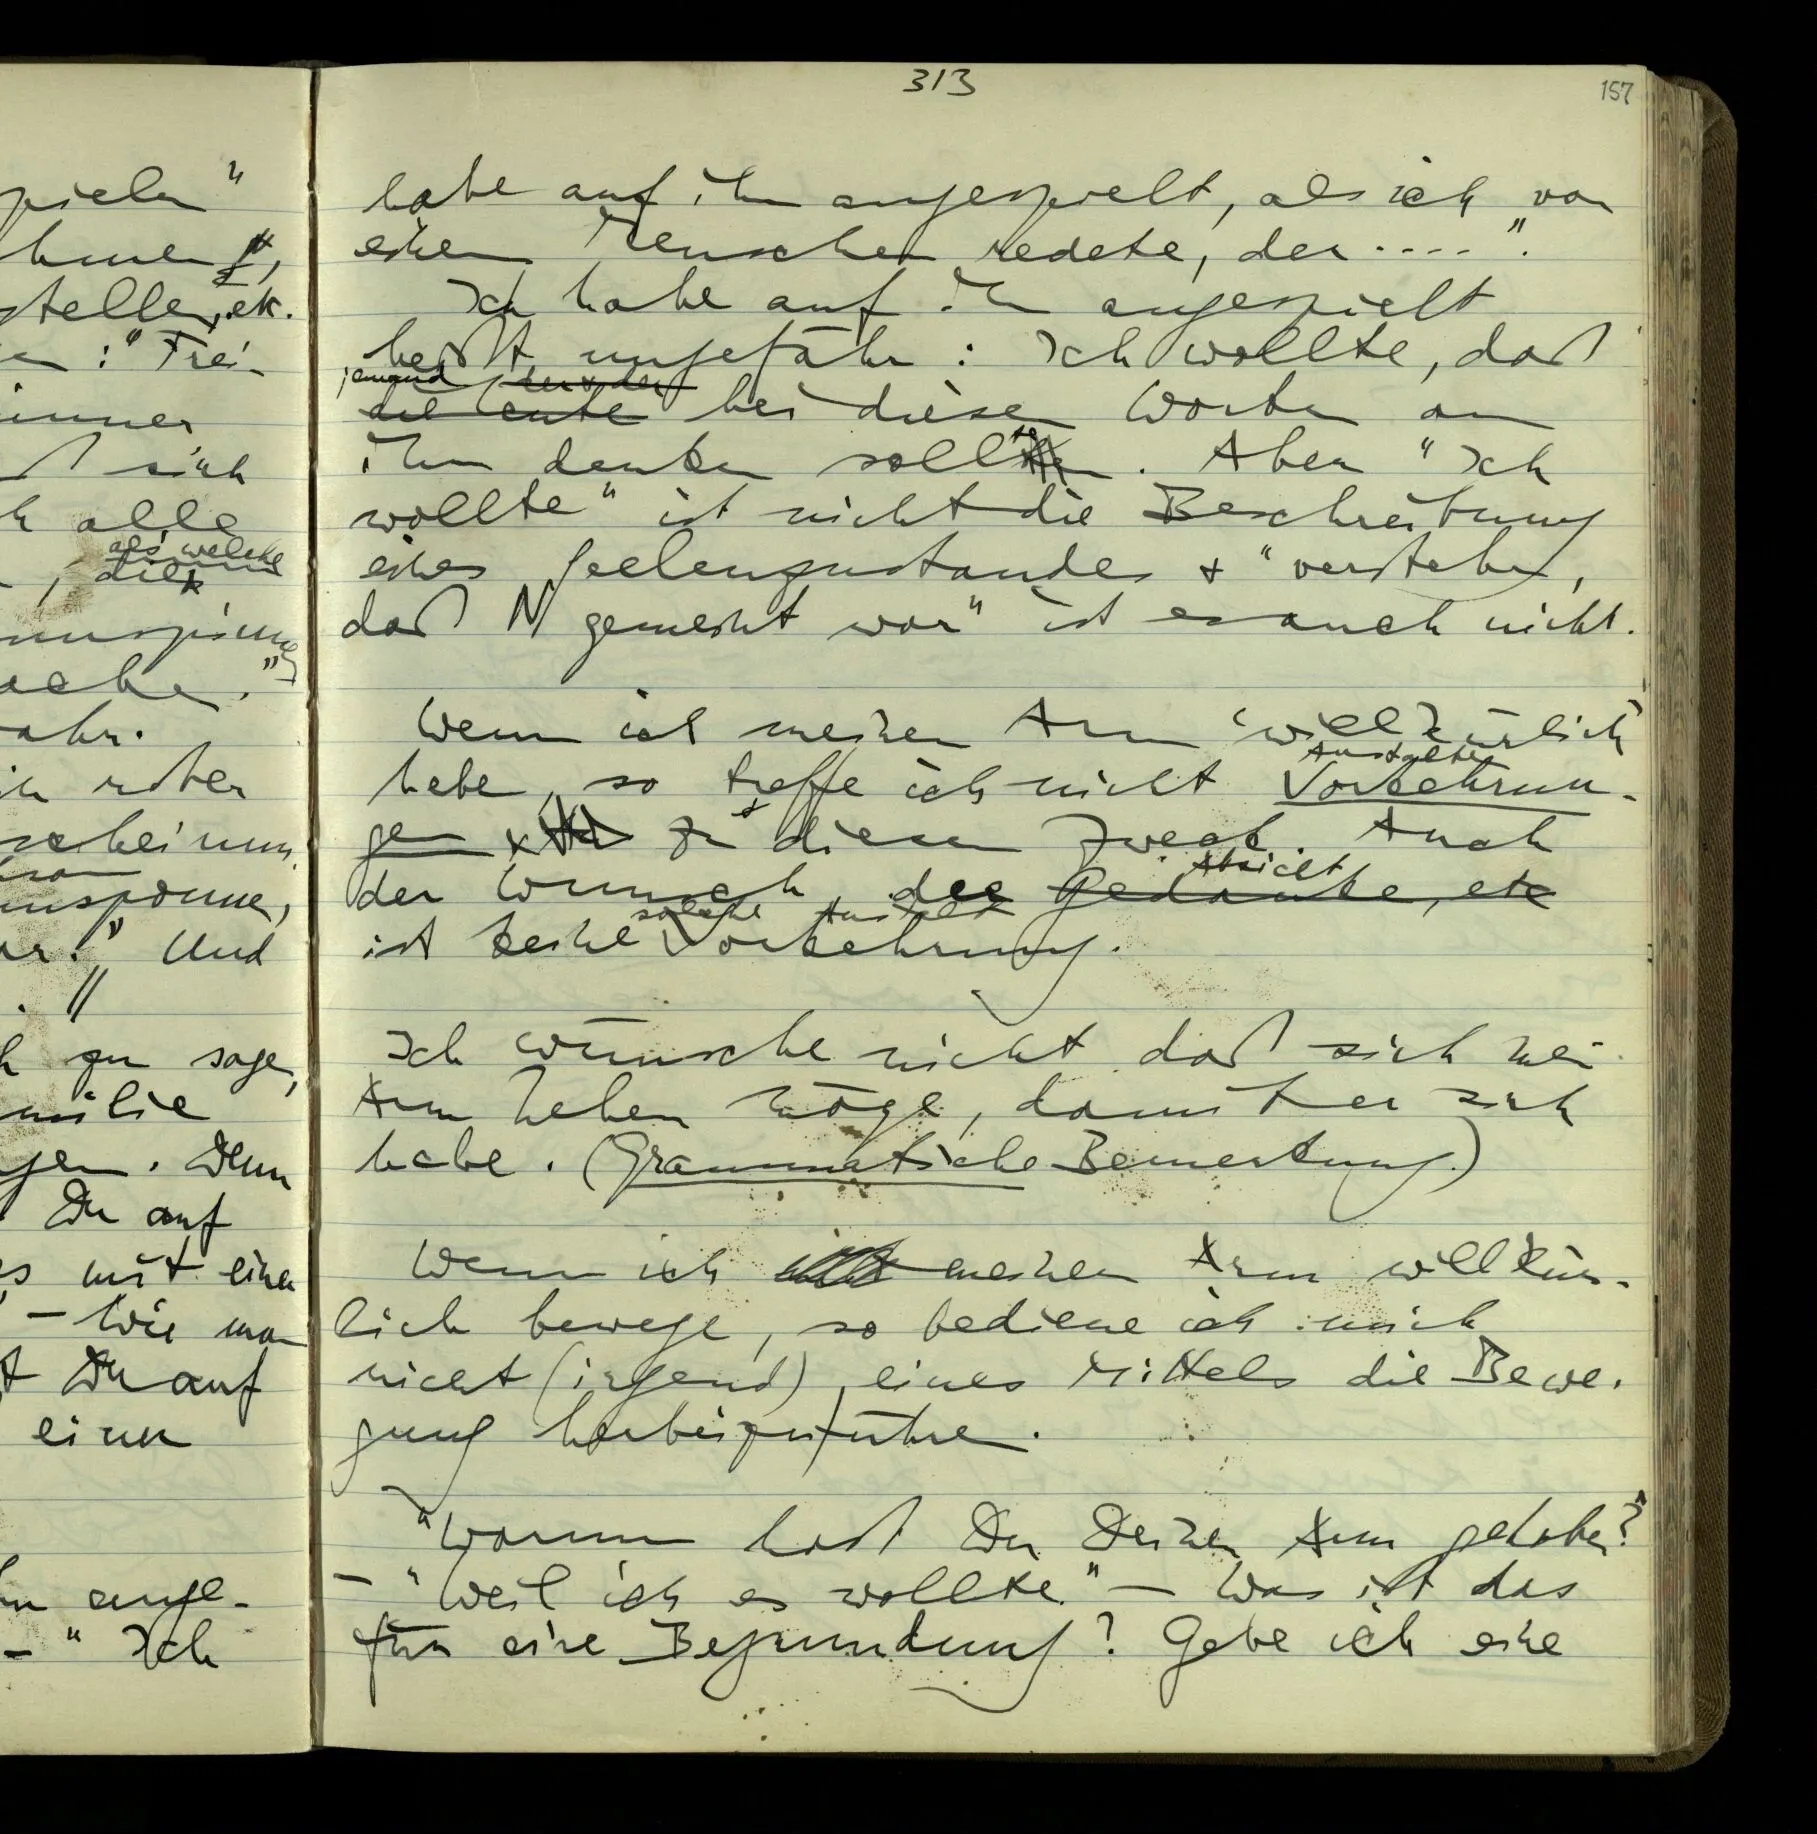 313
157
pielen"
hmen",
stellen, etc.
en: "Frei-
immer
ß sich
h alle
als welche
, die
ache."
wahr.
in roter
ar." Und
. //
h zu sagen,
milie
gen. Denn
Du auf
es mit einen
– Wie man
t Du auf
einen
hn ange-
– " Ich
habe auf ihn angespielt, als ich von
einem Menschen redete, der ....".
Ich habe auf ihn angespielt
heißt ungefähr: Ich wollte, daß
jemand der & der
die Leute bei diesen Worten an
ihn denken sollte. Aber "Ich
wollte" ist nicht die Beschreibung
eines Seelenzustandes & "verstehen,
daß N gemeint war" ist es auch nicht.
Wenn ich meinen Arm 'willkürlich'
Anstalten
hebe, so treffe ich nicht Vorkehrun-
gen zu diesem Zweck. Auch
Absicht
der Wunsch, der Gedanke, etc
solche Anstalt
ist keine Vorkehrung.
Ich wünsche nicht daß sich mein
Arm heben möge, damit er sich
hebe. (Grammatische Bemerkung.)
Wenn ich meinen Arm willkür-
lich bewege, so bediene ich mich
nicht (irgend) eines Mittels die Bewe-
gung herbeizuführen.
"Warum hast Du Deinen Arm gehoben?"
– "Weil ich es wollte." – Was ist das
für eine Begründung? Gebe ich eine